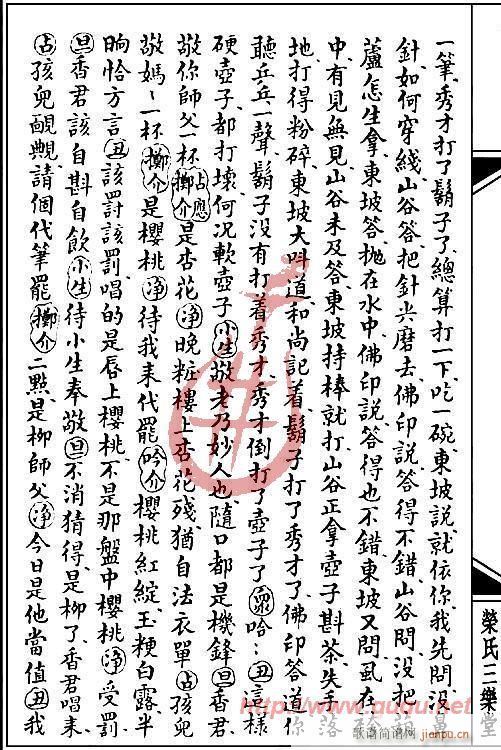 一筆、秀才打了鬍子了、總算打一下、吃一碗、東坡說、就依你、我先問、沒
針如何穿綫、山谷答、把針尖磨去、佛印說、答得不錯、山谷問、沒把
蘆怎生拿、東坡答、拋在水中、佛印說、答得也不錯、東坡又問、虱在
中有見無見、山谷未及答、東坡持棒就打、山谷正拿壺子斟茶、失手
地、打得粉碎、東坡大呌道、和尚記着、鬍子打了秀才了、佛印答道、你
聽乒乓一聲、鬍子沒有打着秀才、秀才倒打了壺子了、衆哈〻丑這樣
硬壺子都打壞、何況軟壺子小生敬老乃妙人也、隨口都是機鋒旦香君
敬你師父一杯擲介占應是杏花淨晚粧樓上杏花殘、猶自法衣單占孩兒
敬媽〻一杯擲介是櫻桃淨待我来代罷吟介櫻桃紅綻、玉粳白露、半
晌恰方言丑該罰該罰、唱的是唇上櫻桃、不是那盤中櫻桃淨受罰
旦香君該自斟自飲小生待小生奉敬旦不消猜得、是柳了、香君唱来
占孩兒靦覥、請個代筆罷擲介二點、是柳師父淨今日是他當值丑我
榮氏三樂堂
www.ququ.net
歌谱简谱网
jianpu.cn